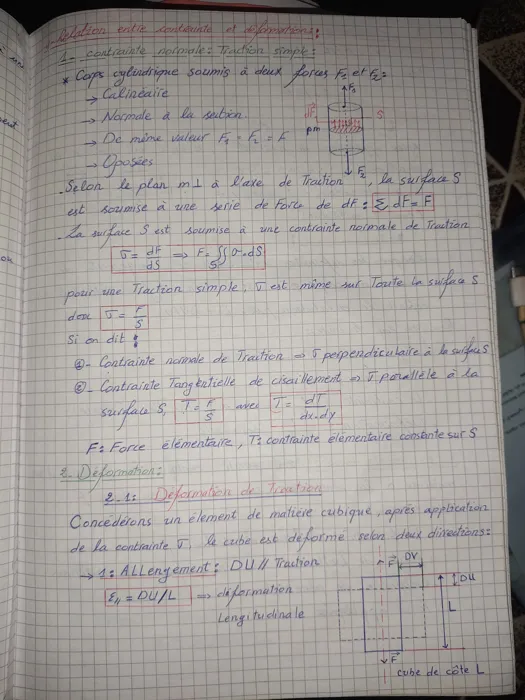 Relation entre contrainte et déformations:
1- contrainte normale: Traction simple:
* Corps cylindrique soumis à deux forces F₁ et F₂:
→ Calinéaire
→ Normale à la section.
→ De même valeur F₁ = F₂ = F
→ Oposées
F₁
dF
S
pm
F₂
- Selon le plan m⊥ à l'axe de Traction, la surface S
est soumise à une serie de Force de dF: Σ dF = F
- La surface S est soumise à une contrainte normale de Traction
σ = dF/dS ⇒ F = ∬_S σ.dS
pour une Traction simple, σ est même sur Toute la surface S
dou σ = F/S
Si on dit:
- Contrainte normale de Traction ⇒ σ perpendiculaire à la surface S
- Contrainte Tangentielle de cisaillement ⇒ σ parallèle à la
surface S, T = F/S avec T = dT/dx.dy
F: Force élémentaire, T: contrainte élémentaire constante sur S
2- Déformation:
2-1: Déformation de Traction
Concedérons un élement de matière cubique, après application
de la contrainte σ, le cube est déformé selon deux directions:
→ 1: ALLengement: DU // Traction
ε// = DU/L ⇒ déformation
Lengitudinale
F
DV
DU
L
F
cube de côte L